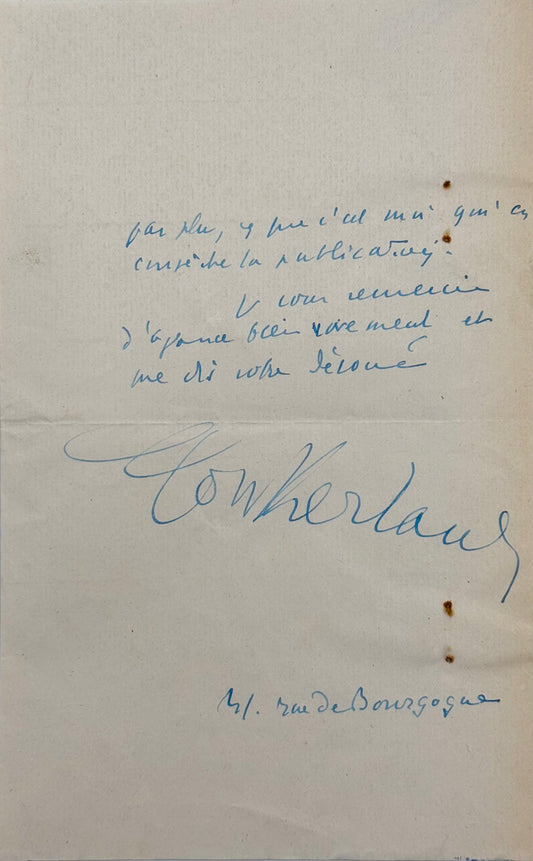 pas plu, et que c'est moi qui en
empêche la publication.
Je vous remercie
d'avance bien vivement et
me dis votre dévoué
Montherlant
41. rue de Bourgogne